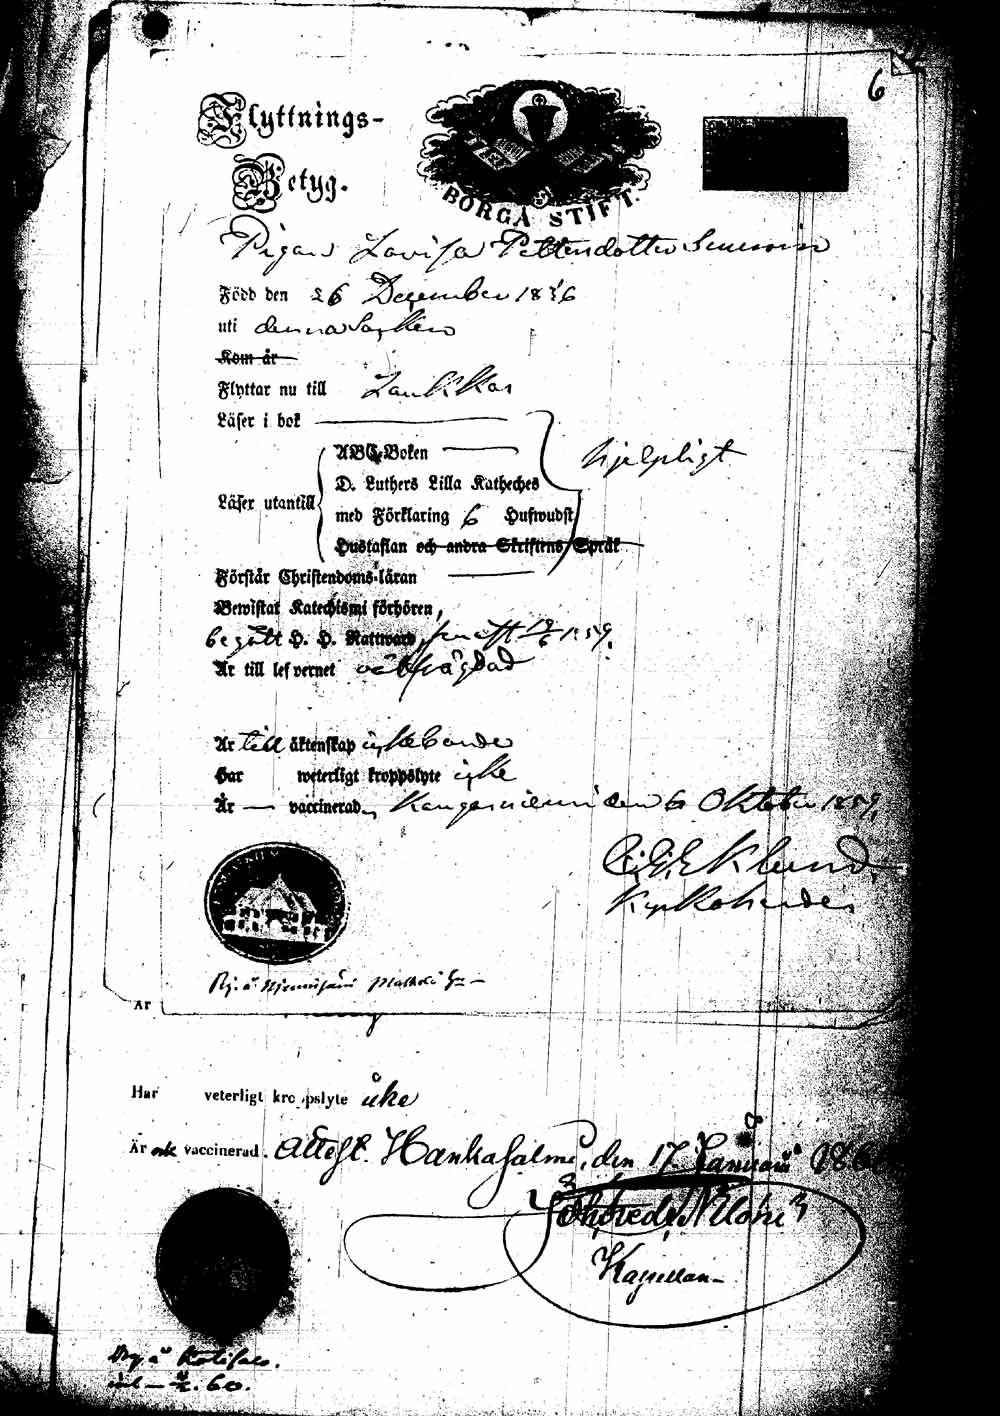 6
Flyttnings-
Betyg.
BORGÅ STIFT.
Pigan Lovisa Pettersdotter
Född den 26 December 18
uti denna Socken
Kom år
Flyttar nu till Laukkas
Läser i bok
hjelpligt
Läser utantill
ABC-Boken
D. Luthers Lilla Katheches
med Förklaring 6 Hufwudst
Hustaflan och andra Skriftens Språk
Förstår Christendoms-läran
Bewistat Katechismi förhören,
begått H. H. Nattward, 1859.
Är till lefvernet välfrägdad
Är till äktenskap icke bunden
Har weterligt kroppslyte icke
Är — vaccinerad, Kangasniemi den 6 Oktober 1859.
Eklund
Kyrkoherde
Är
Har veterligt kroppslyte icke
Är ock vaccinerad. Attest. Hankasalmi, den 17 Januari 1860
Kapellan
60.